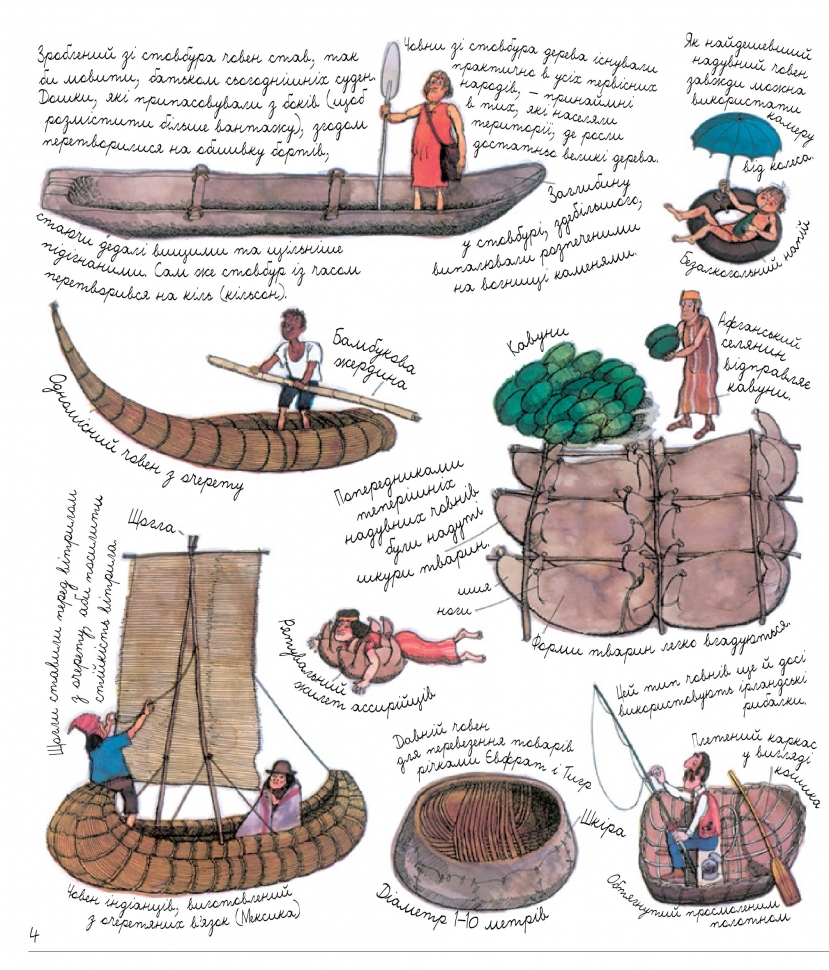 Зроблений зі стовбура човен став, так
би мовити, батьком сьогоднішніх суден.
Дошки, які припасовували з боків (щоб
розмістити більше вантажу), згодом
перетворилися на обшивку бортів,
стаючи дедалі вищими та щільніше
підігнаними. Сам же стовбур із часом
перетворився на кіль (кільсон).
Човни зі стовбура дерева існували
практично в усіх первісних
народів, – принаймні
в тих, які населяли
території, де росли
достатньо великі дерева.
Заглибину
у стовбурі, здебільшого,
випалювали розпеченими
на вогнищі каменями.
Як найдешевший
надувний човен
завжди можна
використати
камеру
від колеса.
Безалкогольний напій
Одномісний човен з очерету
Бамбукова
жердина
Кавуни
Афганський
селянин
відправляє
кавуни.
Попередниками
теперішніх
надувних човнів
були надуті
шкури тварин.
шия
ноги
Форми тварин легко вгадуються.
Щогли ставили перед вітрилом
з очерету, аби посилити
стійкість вітрила.
Щогла
Човен індіанців, виготовлений
з очеретяних в'язок (Мексика)
Рятувальний
жилет ассирійців
Давній човен
для перевезення товарів
річками Євфрат і Тигр
Шкіра
Діаметр 1–10 метрів
Цей тип човнів ще й досі
використовують ірландські
рибалки.
Плетений каркас
у вигляді
кошика
Обтягнутий просмоленим
полотном
4